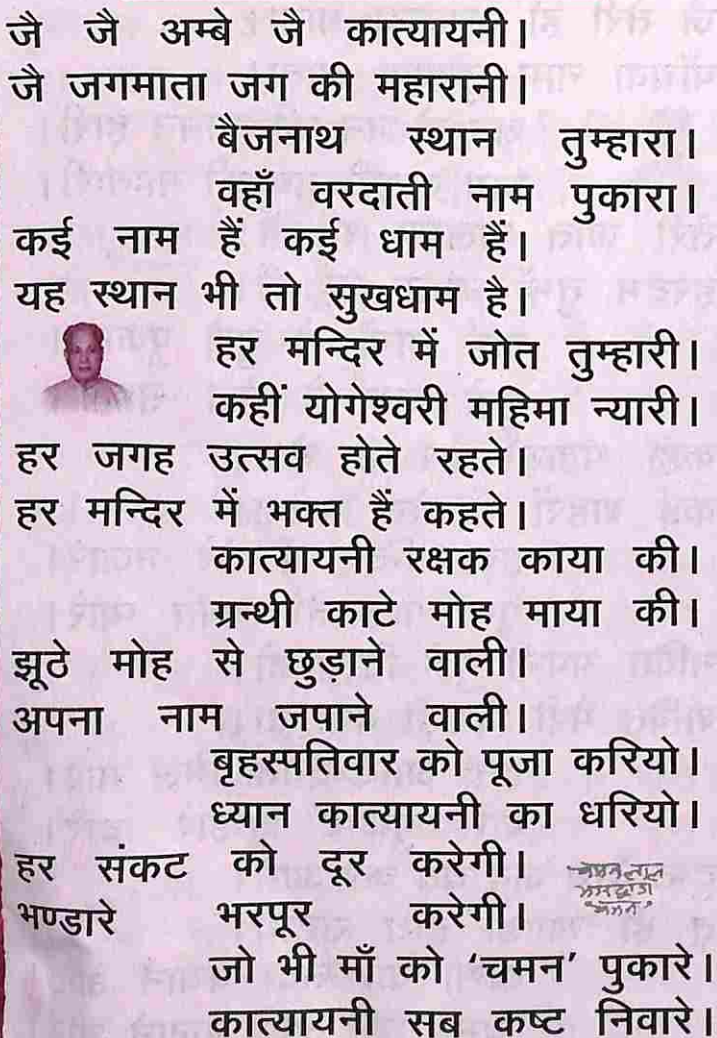 जै जै अम्बे जै कात्यायनी।
जै जगमाता जग की महारानी।
बैजनाथ स्थान तुम्हारा।
वहाँ वरदाती नाम पुकारा।
कई नाम हैं कई धाम हैं।
यह स्थान भी तो सुखधाम है।
हर मन्दिर में जोत तुम्हारी।
कहीं योगेश्वरी महिमा न्यारी।
हर जगह उत्सव होते रहते।
हर मन्दिर में भक्त हैं कहते।
कात्यायनी रक्षक काया की।
ग्रन्थी काटे मोह माया की।
झूठे मोह से छुड़ाने वाली।
अपना नाम जपाने वाली।
बृहस्पतिवार को पूजा करियो।
ध्यान कात्यायनी का धरियो।
हर संकट को दूर करेगी।
भण्डारे भरपूर करेगी।
चमन लाल
भारद्वाज
"चमन"
जो भी माँ को ‘चमन’ पुकारे।
कात्यायनी सब कष्ट निवारे।